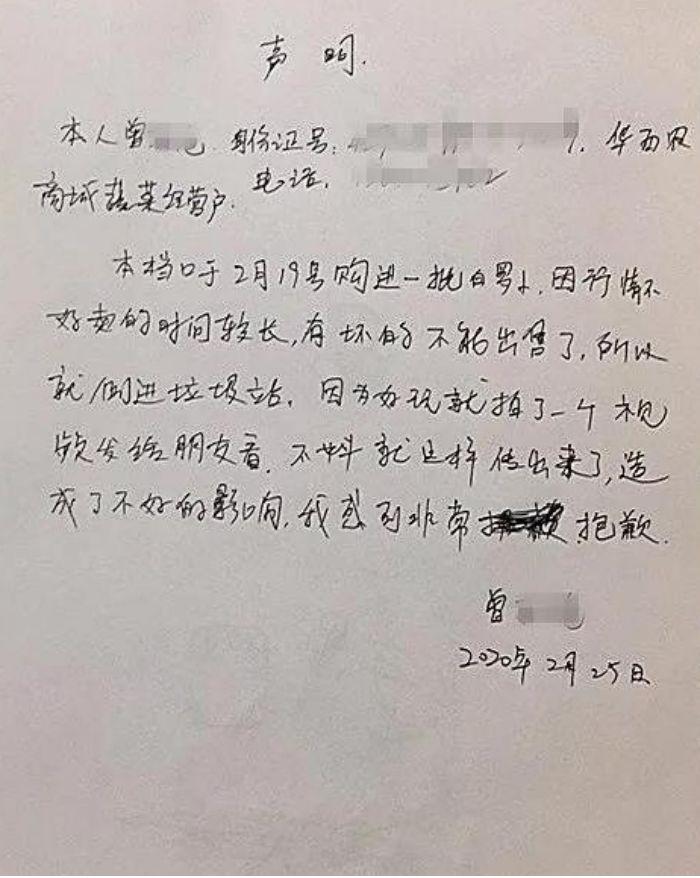 声 明.
本人曾 身份证号: 华西农
商城蔬菜经营户. 电话.
本档口于2月19号购进一批白罗卜, 因行情不
好卖的时间较长, 有坏的不能出售了, 所以
就倒进垃圾站. 因为好玩就拍了一个视
频发给朋友看. 不料就这样传出来了, 造
成了不好的影响, 我感到非常 抱歉.
曾
2020年2月25日